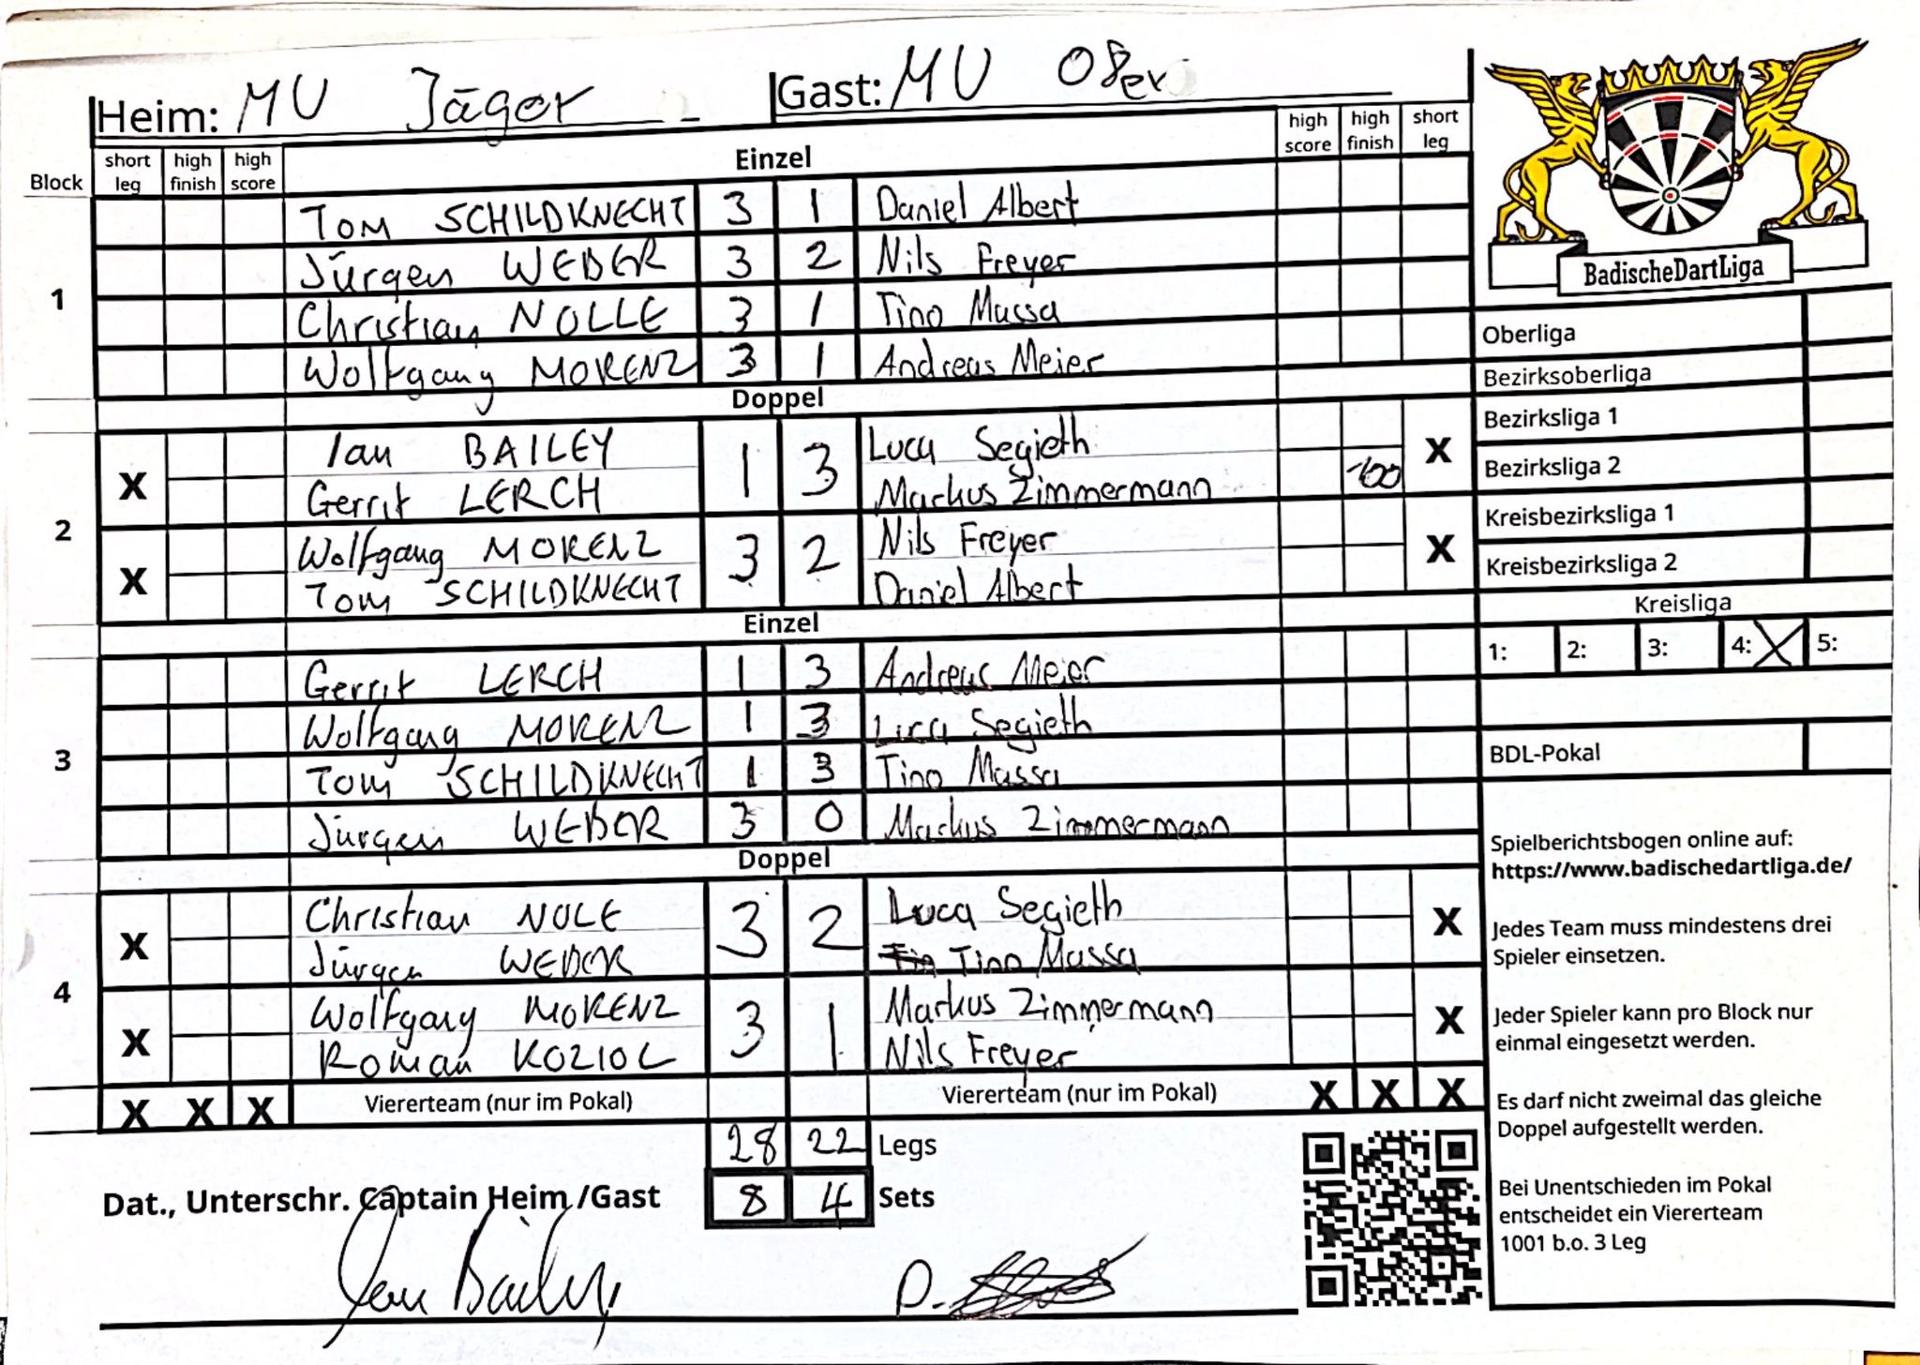 Heim: MU Jäger Gast: MU 08er
Block short leg high finish high score Einzel high score high finish short leg
1
TOM SCHILDKNECHT 3 1 Daniel Albert
Jürgen WEBER 3 2 Nils Freyer
Christian NOLLE 3 1 Tino Mussa
Wolfgang MORENZ 3 1 Andreas Meier
Doppel
2
X Ian BAILEY 1 3 Luca Segieth X
Gerrit LERCH Markus Zimmermann 100
X Wolfgang MORENZ 3 2 Nils Freyer X
Tom SCHILDKNECHT Daniel Albert
Einzel
3
Gerrit LERCH 1 3 Andreas Meier
Wolfgang MORENZ 1 3 Luca Segieth
TOM SCHILDKNECHT 1 3 Tino Mussa
Jürgen WEBER 3 0 Markus Zimmermann
Doppel
4
X Christian NOLE 3 2 Luca Segieth X
Jürgen WEBER Tino Mussa
X Wolfgang MORENZ 3 1 Markus Zimmermann X
Roman KOZIOL Nils Freyer
X X X Viererteam (nur im Pokal) Viererteam (nur im Pokal) X X X
28 22 Legs
8 4 Sets
Dat., Unterschr. Captain Heim /Gast
Ian Bailey
D.
BadischeDartLiga
Oberliga
Bezirksoberliga
Bezirksliga 1
Bezirksliga 2
Kreisbezirksliga 1
Kreisbezirksliga 2
Kreisliga
1: 2: 3: 4: X 5:
BDL-Pokal
Spielberichtsbogen online auf:
https://www.badischedartliga.de/
Jedes Team muss mindestens drei
Spieler einsetzen.
Jeder Spieler kann pro Block nur
einmal eingesetzt werden.
Es darf nicht zweimal das gleiche
Doppel aufgestellt werden.
Bei Unentschieden im Pokal
entscheidet ein Viererteam
1001 b.o. 3 Leg